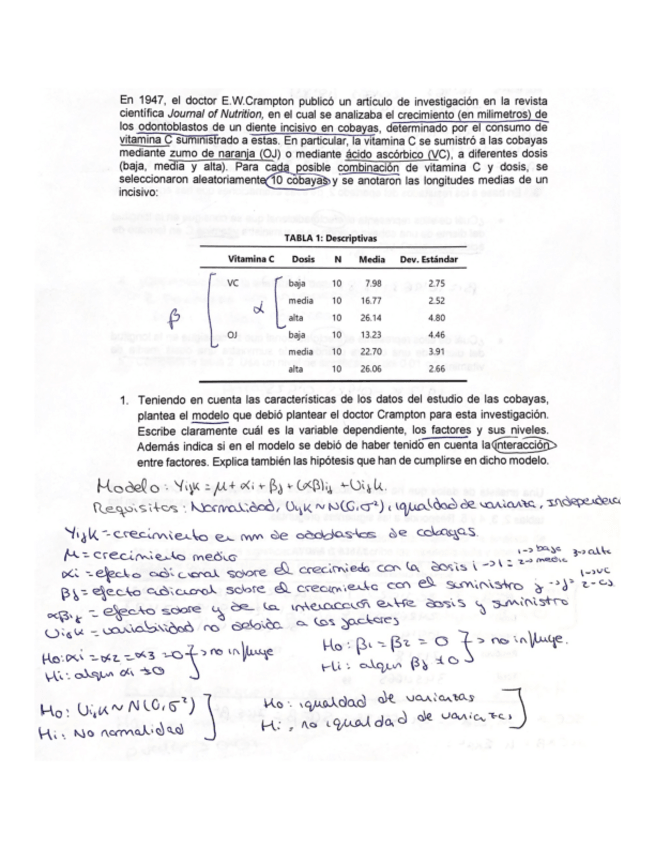 En 1947, el doctor E.W.Crampton publicó un articulo de investigación en la revista
científica Journal of Nutrition, en el cual se analizaba el crecimiento (en milimetros) de
los odontoblastos de un diente incisivo en cobayas, determinado por el consumo de
vitamina C suministrado a estas. En particular, la vitamina C se sumistró a las cobayas
mediante zumo de naranja (OJ) o mediante ácido ascórbico (VC), a diferentes dosis
(baja, media y alta). Para cada posible combinación de vitamina C y dosis, se
seleccionaron aleatoriamente 10 cobayas y se anotaron las longitudes medias de un
incisivo:
TABLA 1: Descriptivas
Vitamina C Dosis N Media Dev. Estándar
VC baja 10 7.98 2.75
media 10 16.77 2.52
β α
alta 10 26.14 4.80
OJ baja 10 13.23 4.46
media 10 22.70 3.91
alta 10 26.06 2.66
1. Teniendo en cuenta las características de los datos del estudio de las cobayas,
plantea el modelo que debió plantear el doctor Crampton para esta investigación.
Escribe claramente cuál es la variable dependiente, los factores y sus niveles.
Además indica si en el modelo se debió de haber tenido en cuenta la interacción
entre factores. Explica también las hipótesis que han de cumplirse en dicho modelo.
Modelo: Yijk = μ + αi + βj + (αβ)ij + Uijk.
Requisitos: Normalidad, Uijk ~ N(0,σ²), igualdad de varianza, Independencia
Yijk = crecimiento en mm de odoblastos de cobayas.
μ = crecimiento medio
αi = efecto adicional sobre el crecimiento con la dosis i → 1 → baja 2 → media 3 → alta
βj = efecto adicional sobre el crecimiento con el suministro j → 1 → VC
αβij = efecto sobre y de la interacción entre dosis y suministro
Uijk = variabilidad no debida a los factores
Ho: αi = α2 = α3 = 0 } → no influye
Hi: algun αi ≠ 0
Ho: β1 = β2 = 0 } → no influye.
Hi: algun βj ≠ 0
Ho: Uijk ~ N(0,σ²)
Hi: No normalidad
Ho: igualdad de varianzas
Hi: no igualdad de varianzas